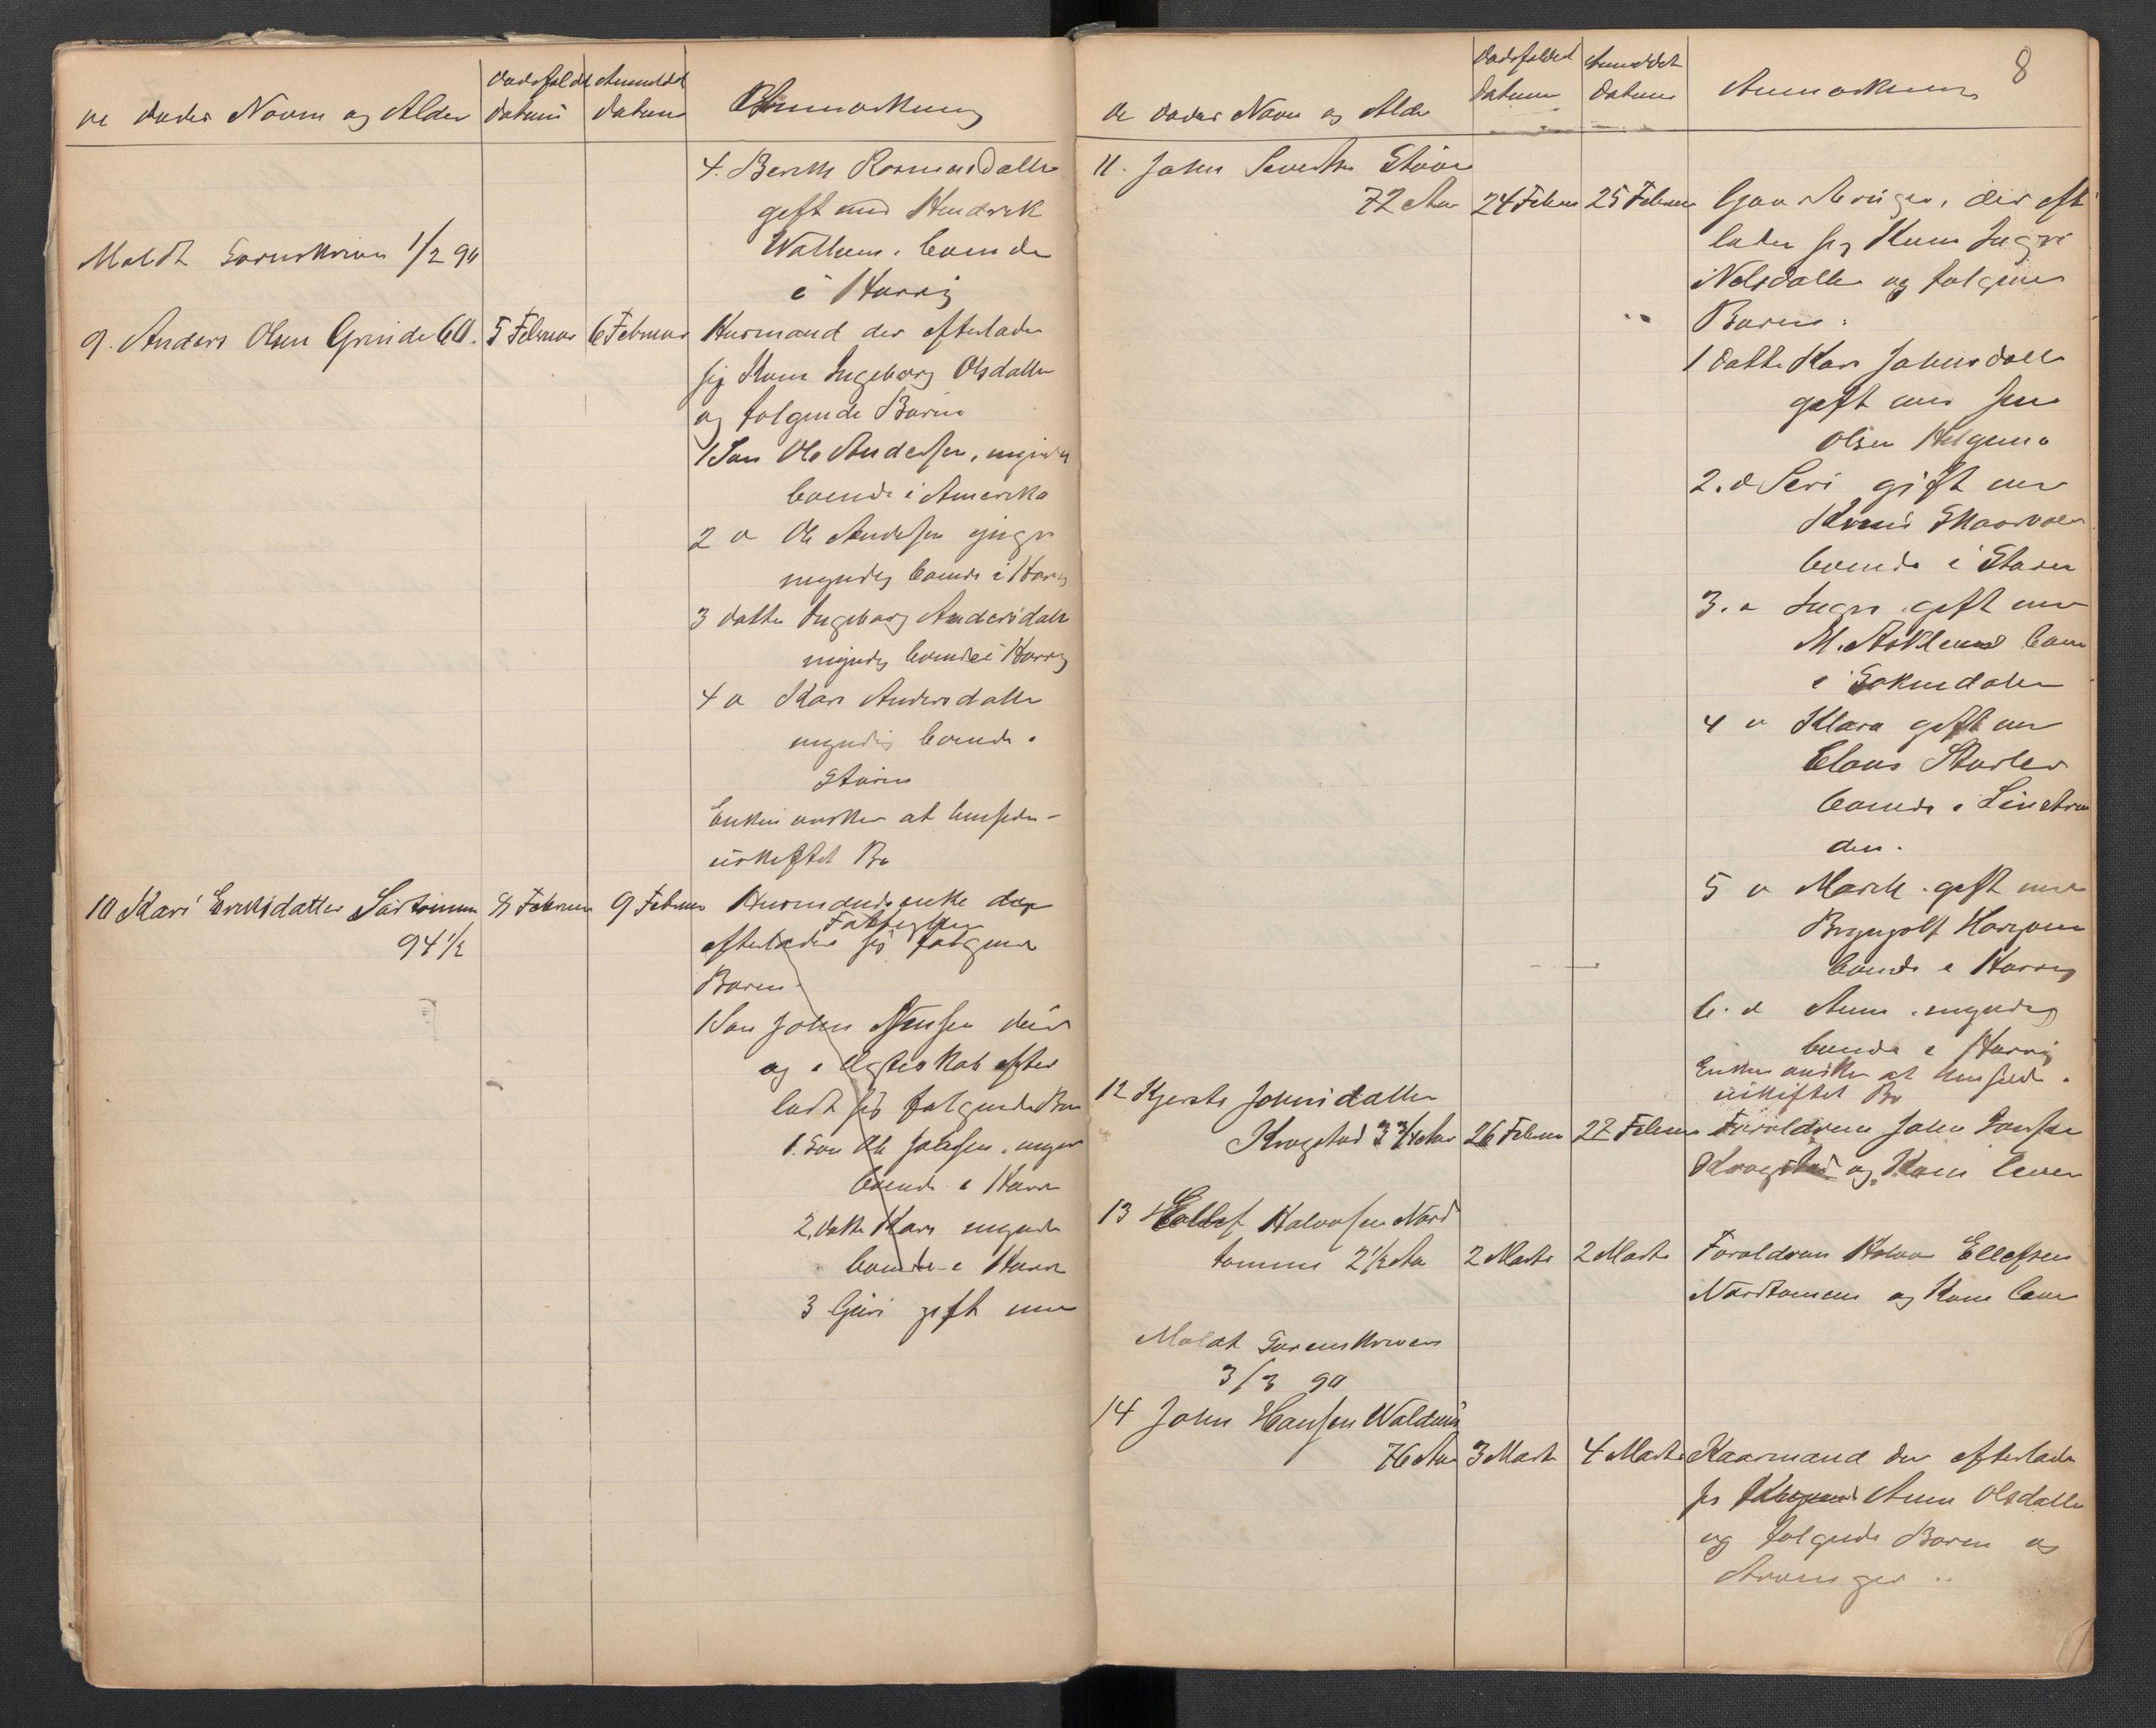 de dødes Navn og Alder
Dødsfaldets
datum
Anmeldt
datum
Anmærkning
4. Berith Rasmusdatter
gift med Hendrik
Wallum. boende
i Horrig
Meldt Sorenskriver 1/2 90
9. Anders Olsen Grinde 60. 5 Februar 6 Februar Husmand der efterlader
sig Kone Ingeborg Olsdatter
og følgende Børn
1 Søn Ole Andersen, myndig
boende i Amerika
2 o Ole Andersen yngr
myndig boende i Horrig
3 datter Ingeborg Andersdatter
myndig boende i Horrig
4 o Kari Andersdatter
myndig boende i
Støren
Enken ønsker at hensidde i
uskiftet Bo
10 Kari Eriksdatter 8 Februar 9 Februar Husmandsenke der
94 1/2
Fattiglem
efterlader sig følgende
Børn
1 Søn John Jensen død
og i Ægteskab efter
ladt sig følgende Børn
1. Søn Ole Johnsen, myndig
boende i Horrig
2. datter Kari myndig
boende i Horrig
3 Guri gift med
8
de dødes Navn og Alder
Dødsfaldets
datum
Anmeldt
datum
Anmærkning
11. John Sivertsen Støre
72 Aar 24 Februar 25 Februar Gaardbruger, der efter
lader sig Kone Ingri
Nilsdatter og følgende
Børn.
1 datter Kari Johnsdatter
gift med Jens
Olsen
2. o Seri gift med
boende i Støren
3. o Ingri gift med
M. boende
i Soknedalen
4 o Klara gift med
Claus
boende i Linstran
den.
5 o Marit. gift med
Brynjolf
boende i Horrig
6. o Anne. myndig
boende i Horrig
Enken ønsker at hensidde i
uskiftet Bo
12 Kjersti Johnsdatter
Krogstad 3 3/4 Aar 26 Februar 27 Februar Forældrene John
Krogstad og Kone lever
13 Ellef Halvorsen Nord
tømme 2 1/2 Aar 2 Marts 2 Marts Forældrene Halvor Ellefsen
Nordtømmen og Kone lever
Meldt Sorenskriver
3/3 90
14 John Hansen
76 Aar 3 Marts 4 Marts Kaarmand der efterlader
sig Anne Olsdatter
og følgende Børn og
Arvinger ..